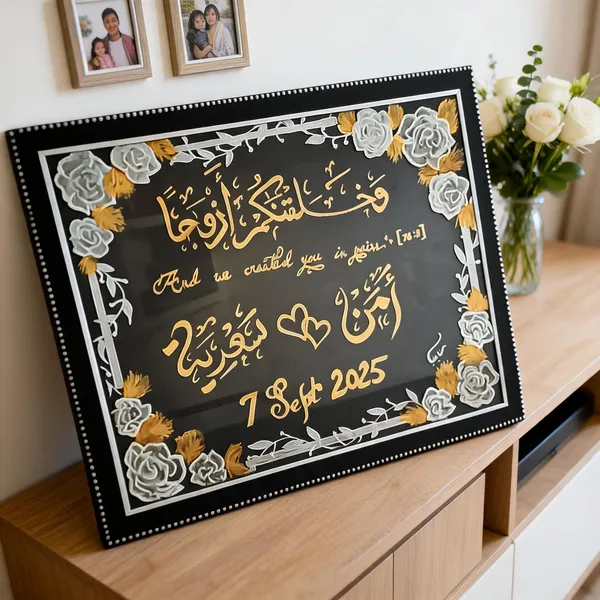 وَخَلَقْنَكُمْ أَزْوَجًا
And we created you in pairs [78:8]
أمن سعدية
7 Sept 2025